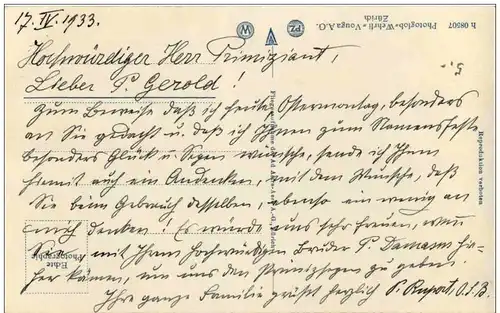 17. IV. 1933.
Hochwürdiger Herr Primiziant,
Lieber P. Gerold!
Zum Beweise daß ich heute, Ostermontag, besonders
an Sie gedacht u. daß ich Ihnen zum Namensfeste
besonders Glück u. Segen wünsche, sende ich Ihnen
hiemit auch ein Andenken, mit dem Wunsche, daß
Sie beim Gebrauch desselben, ebenso ein wenig an
mich denken! Es würde uns sehr freuen, wenn
Sie mit Ihrem Hochwürdigen Bruder P. Damasus hie-
her kämen, um uns den Primizsegen zu geben.
Ihre ganze Familie grüßt herzlich P. Rupert, O.S.B.
h 08507 Photoglob-Wehrli-Vouga A.G.
Zürich
W
PZ
5.-
Reproduktion verboten
Fliegeraufnahme der Ad Astra-Aero A.-G., Zürich
Echte
Photographie